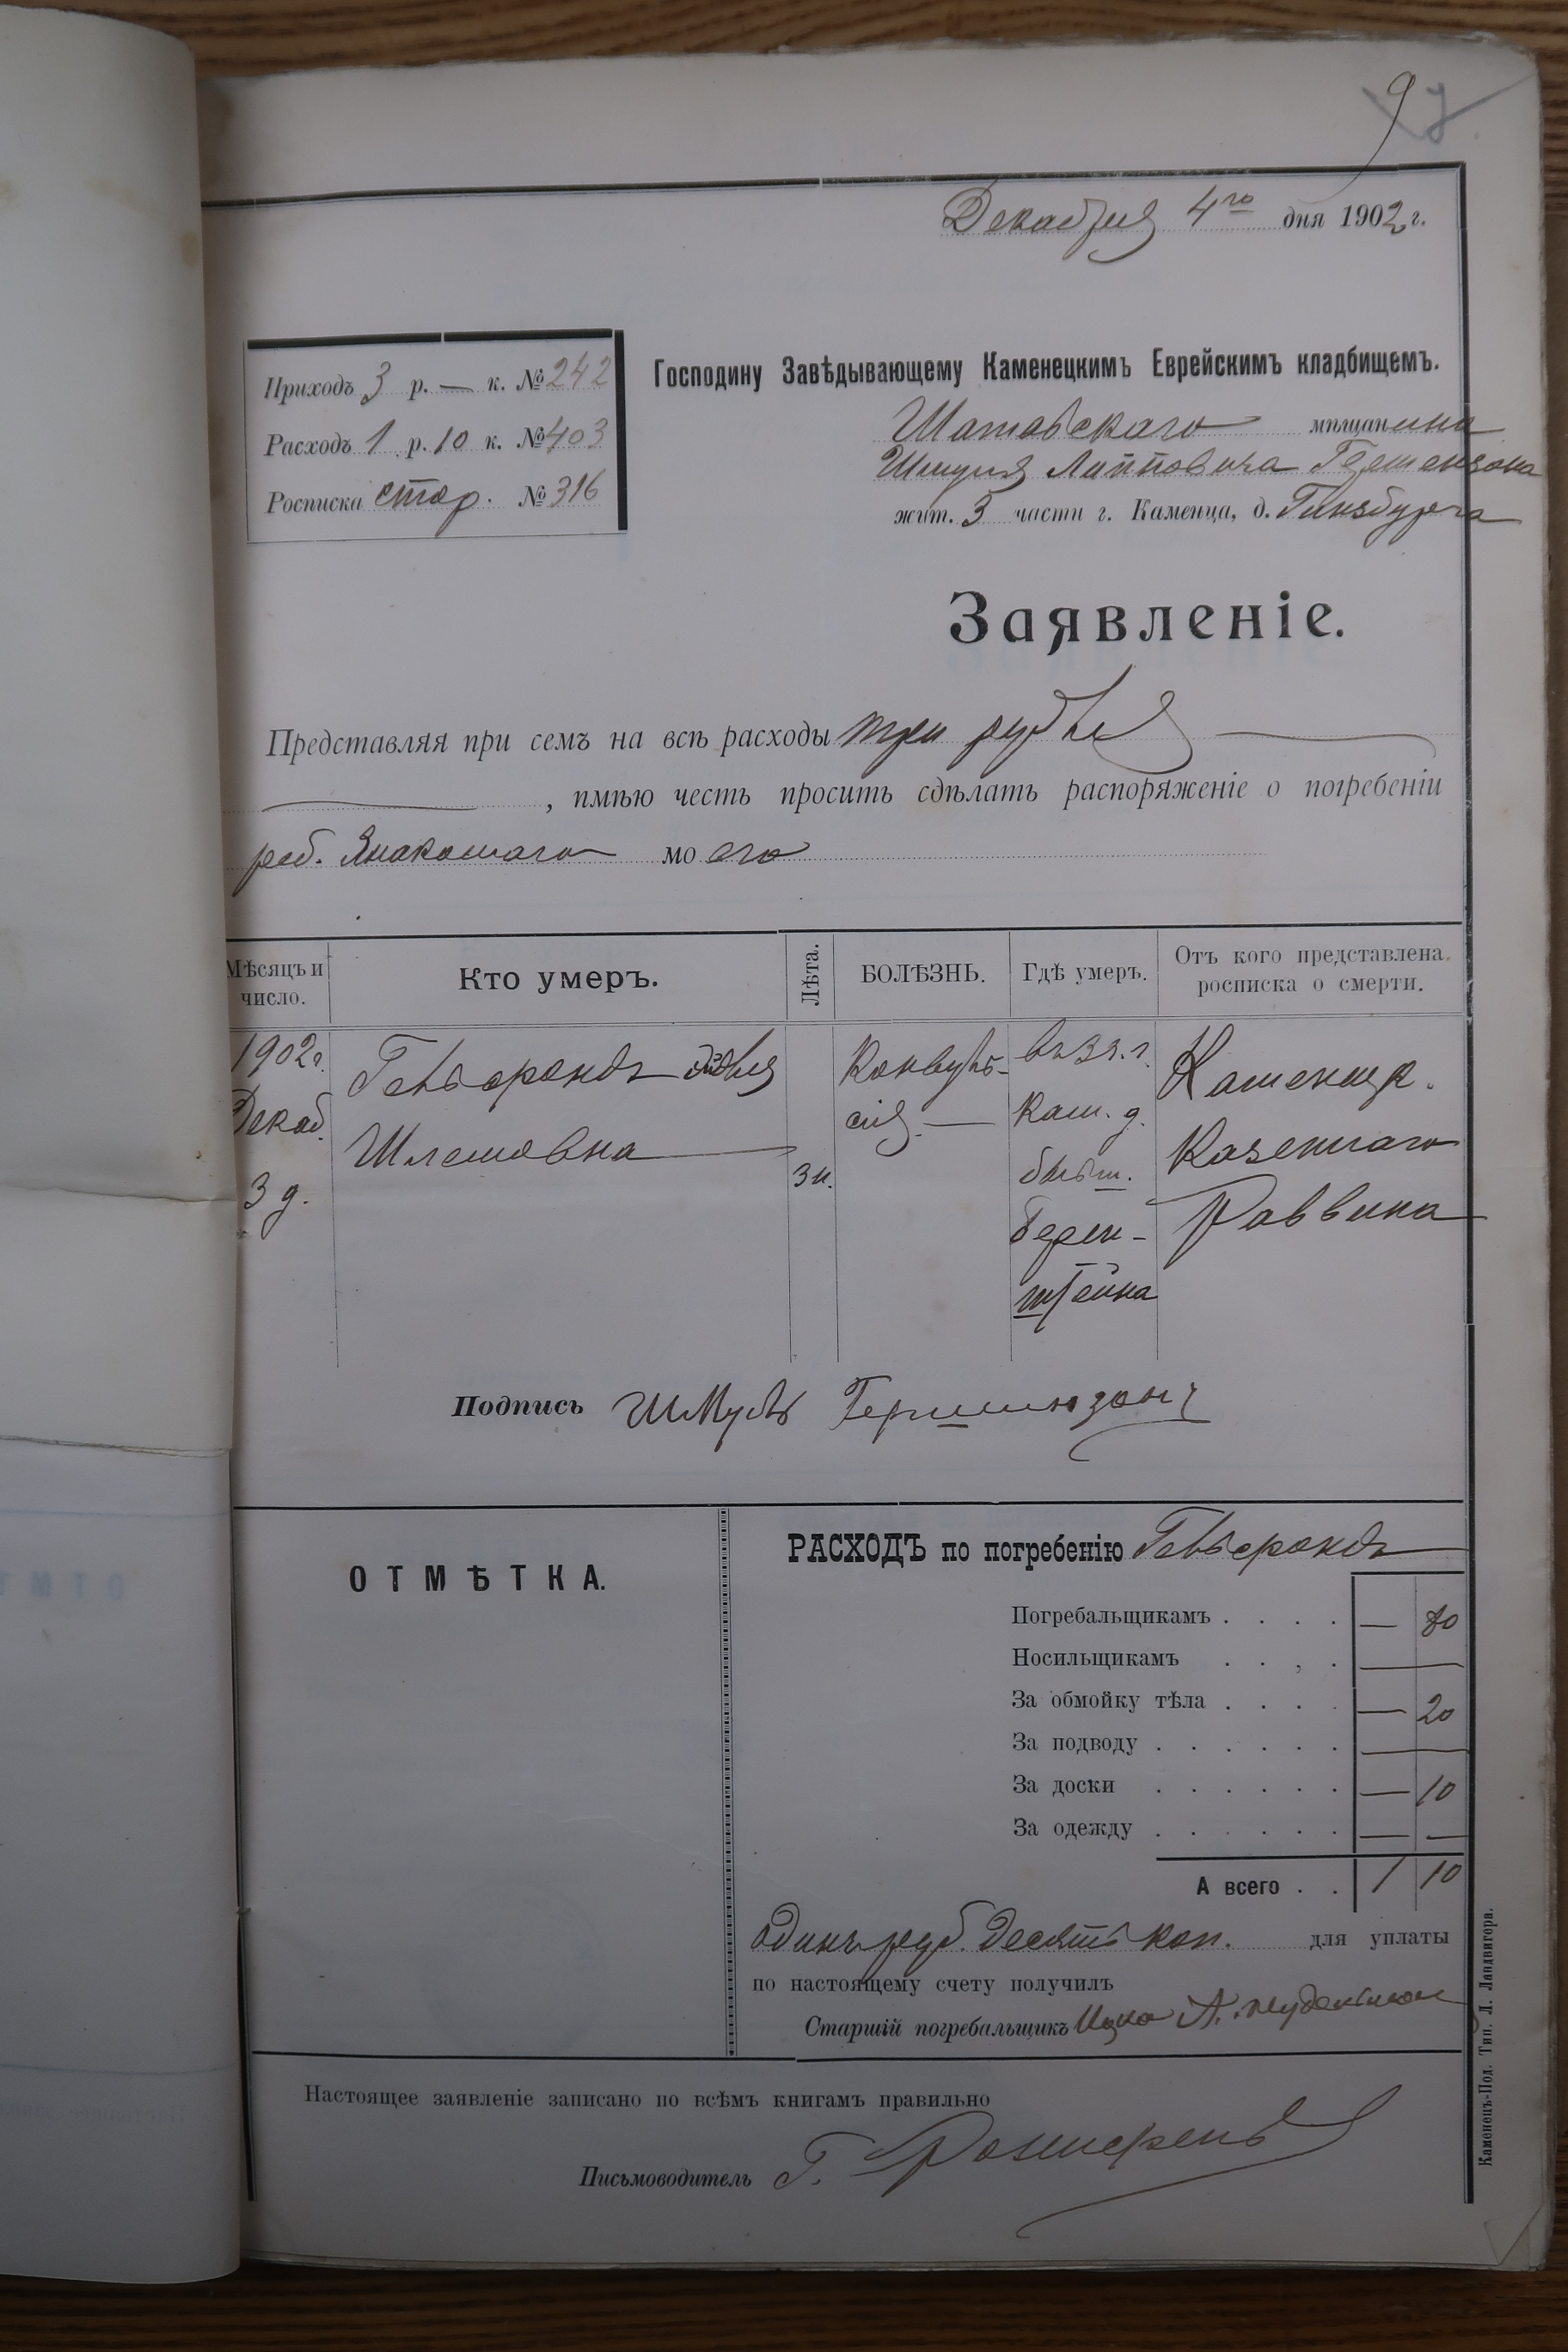 9
Декабря 4го дня 1902 г.
Приходъ 3 р. — к. № 242
Расходъ 1 р. 10 к. № 403
Росписка стар. № 316
Господину Завѣдывающему Каменецкимъ Еврейскимъ кладбищемъ.
Шатавскаго мѣщанина
Шмуля Липповича Гершензона
жит. 3 части г. Каменца, д. Гинзбурга
Заявленіе.
Представляя при семъ на всѣ расходы три рубля
, имѣю честь просить сдѣлать распоряженіе о погребеніи
реб. Знакомаго моего
Мѣсяцъ и число.
Кто умеръ.
Лѣта.
БОЛѢЗНЬ.
Гдѣ умеръ.
Отъ кого представлена росписка о смерти.
1902 г.
Декаб.
3 д.
Гельфандъ
Шлемовна
3 н.
Конвуль-
сія.
въ 3 ч. г.
Кам. д.
бывш.
Берен-
штейна
Каменецк.
Казеннаго
Раввина
Подпись Шмуль Гершинзонъ
ОТМѢТКА.
РАСХОДЪ по погребенію Гельфандъ
Погребальщикамъ . . . . — 80
Носильщикамъ . . . . —
За обмойку тѣла . . . . — 20
За подводу . . . . . . —
За доски . . . . . . — 10
За одежду . . . . . . — —
А всего . . 1 10
Одинъ руб. десять коп. для уплаты
по настоящему счету получилъ
Старшій погребальщикъ Ицко А.
Настоящее заявленіе записано по всѣмъ книгамъ правильно
Письмоводитель Г.
Каменецъ-Под. Тип. Л. Ландвигера.